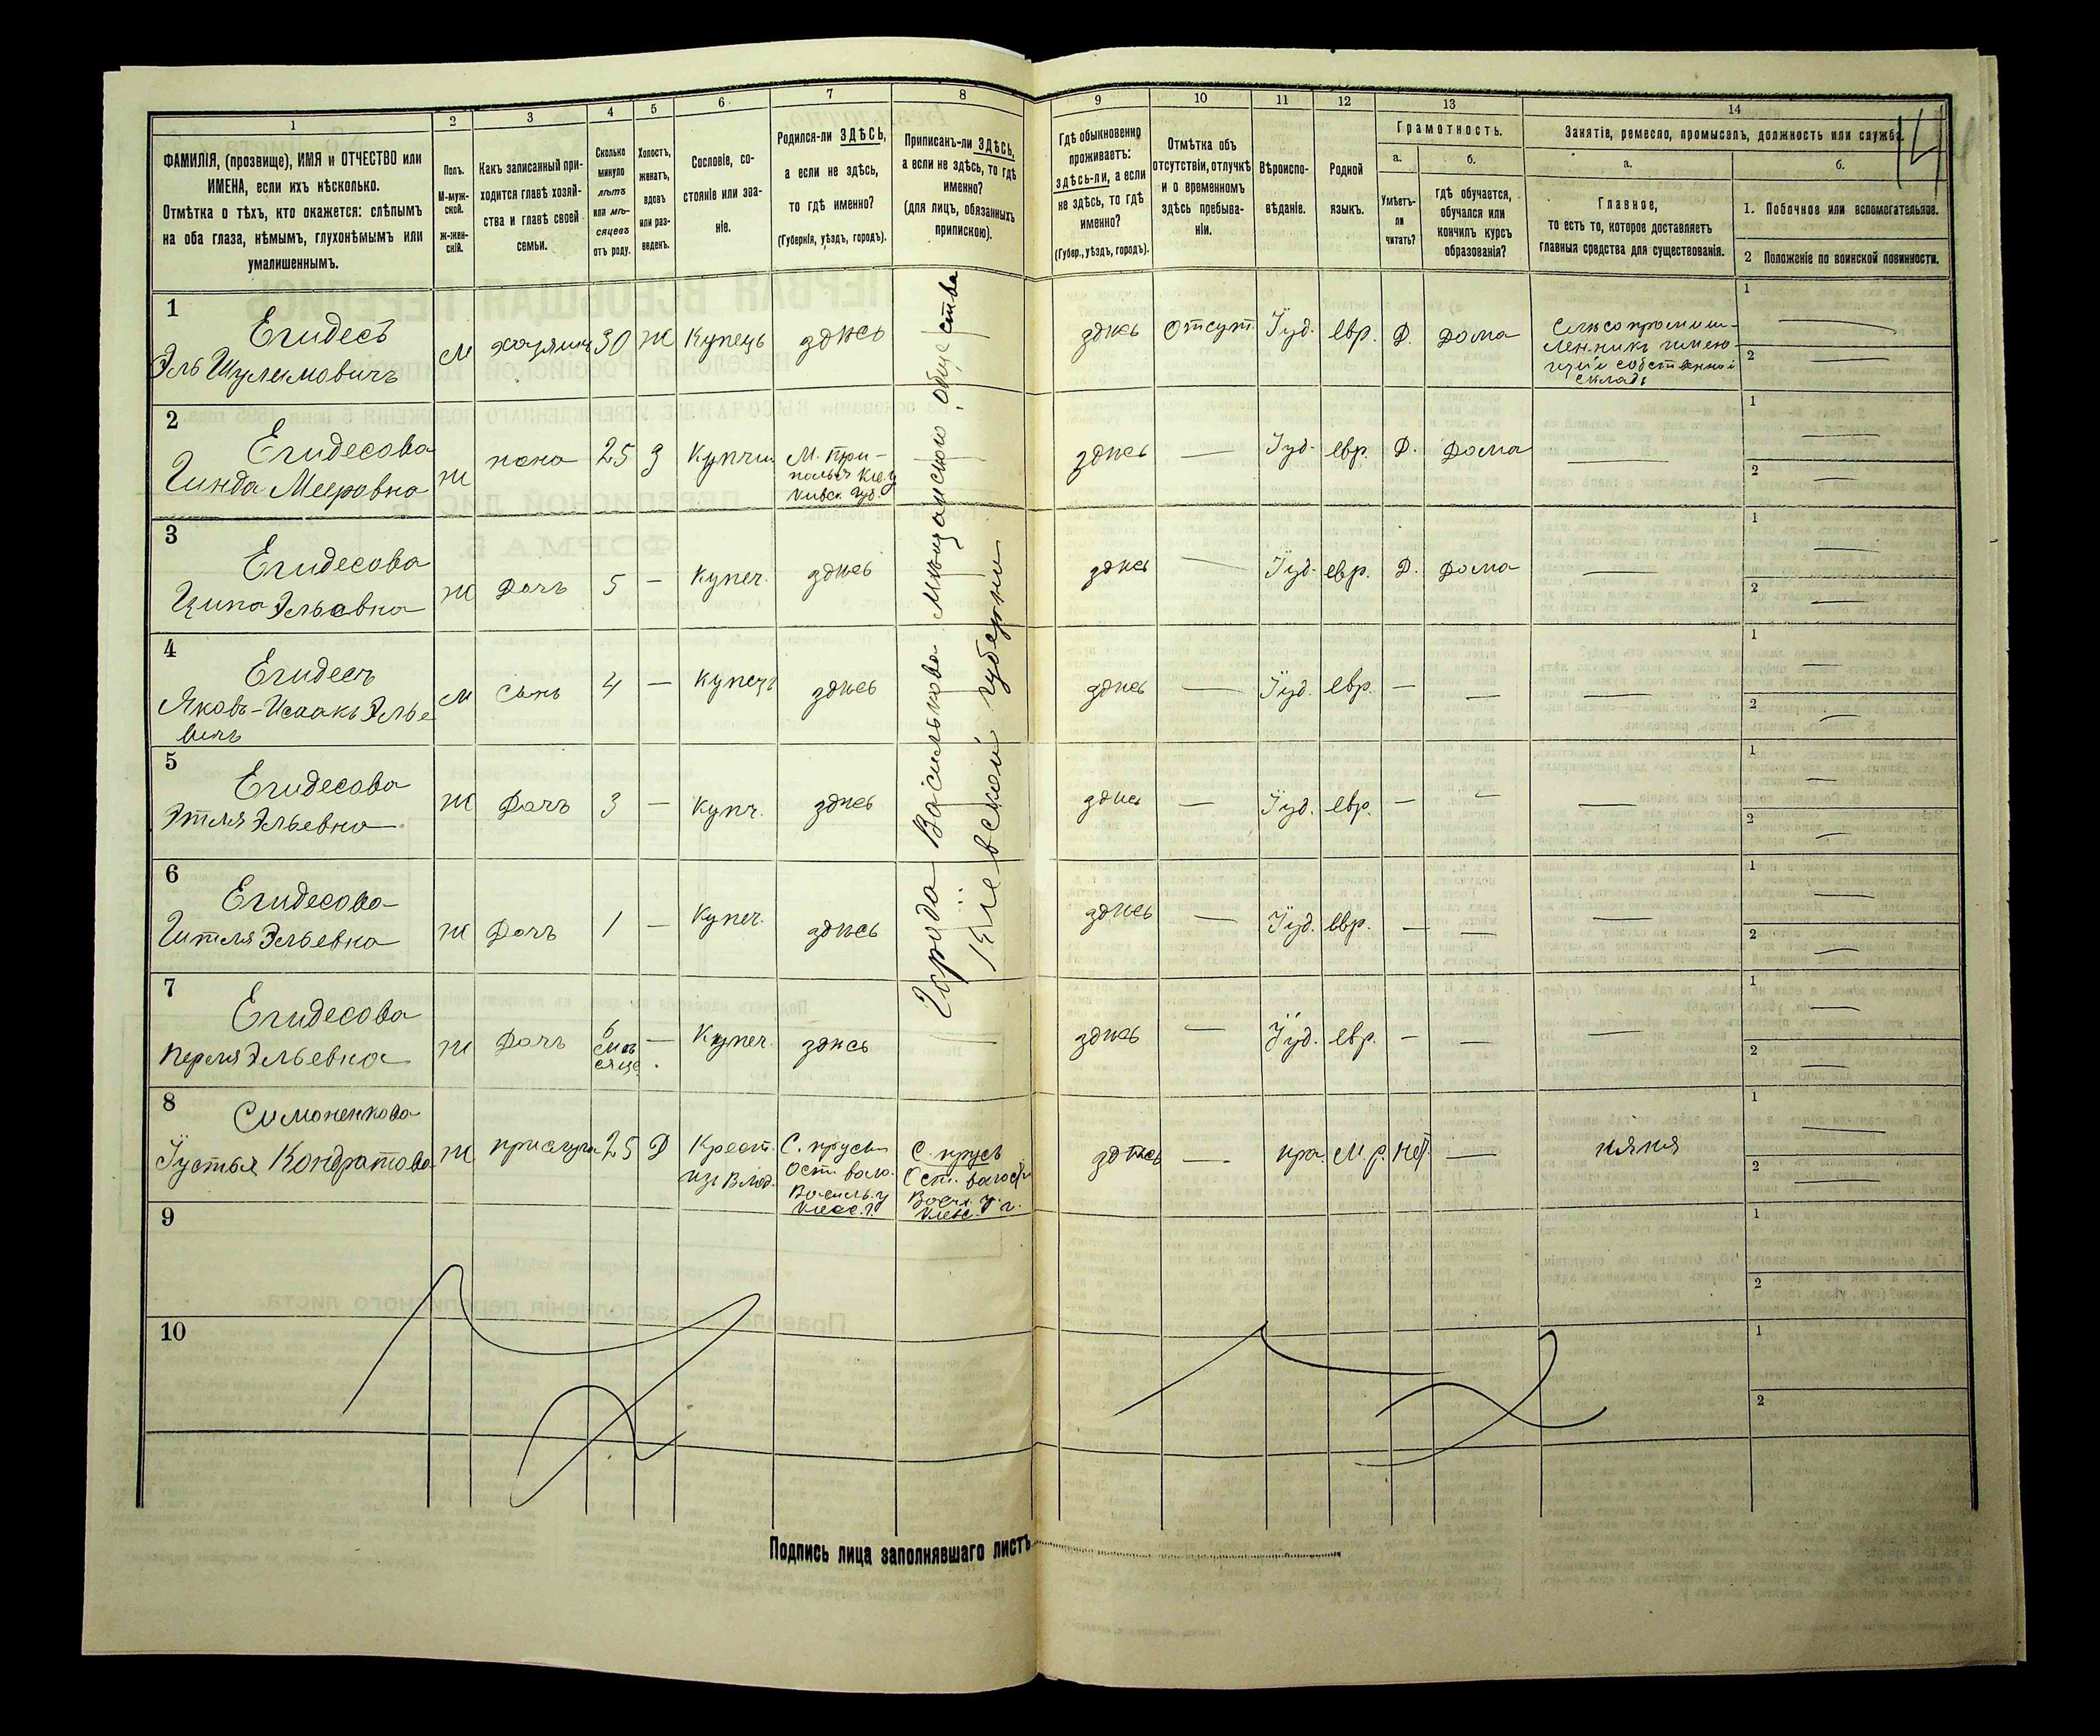 1
2
3
4
5
6
7
8
9
10
11
12
13
14
14
ФАМИЛІЯ, (прозвище), ИМЯ и ОТЧЕСТВО или
ИМЕНА, если ихъ нѣсколько.
Отмѣтка о тѣхъ, кто окажется: слѣпымъ
на оба глаза, нѣмымъ, глухонѣмымъ или
умалишеннымъ.
Полъ.
М-муж-
ской.
ж-жен-
скій.
Какъ записанный при-
ходится главѣ хозяй-
ства и главѣ своей
семьи.
Сколько
минуло
лѣтъ
или мѣ-
сяцевъ
отъ роду.
Холостъ,
женатъ,
вдовъ
или раз-
веденъ.
Сословіе, со-
стояніе или зва-
ніе.
Родился-ли ЗДѢСЬ,
а если не здѣсь,
то гдѣ именно?
(Губернія, уѣздъ, городъ).
Приписанъ-ли ЗДѢСЬ,
а если не здѣсь, то гдѣ
именно?
(для лицъ, обязанныхъ
припискою).
Гдѣ обыкновенно
проживаетъ:
здѣсь-ли, а если
не здѣсь, то гдѣ
именно?
(Губер., уѣздъ, городъ).
Отмѣтка объ
отсутствіи, отлучкѣ
и о временномъ
здѣсь пребыва-
ніи.
Вѣроиспо-
вѣданіе.
Родной
языкъ.
Грамотность.
а.
Умѣетъ-
ли
читать?
б.
гдѣ обучается,
обучался или
кончилъ курсъ
образованія?
Занятіе, ремесло, промыселъ, должность или служба.
а.
Главное,
то есть то, которое доставляетъ
главныя средства для существованія.
б.
1. Побочное или вспомогательное.
2 Положеніе по воинской повинности.
1
Егидесъ
Эль Шулимовичъ
м хозяинъ 30 ж Купецъ здѣсь
здѣсь Отсут. Іуд. евр. Д. дома
Лѣсопромыш-
ленникъ имѣю-
щій собственный
складъ
1
2
2
Егидесова
Гинда Мееровна
ж жена 25 З
М. Три-
полье Кіе. у
Кіевск. Губ.
здѣсь — Іуд. евр. Д. Дома —
1
2
3
Егидесова
Ципа Эльевна
ж Дочь 5 — Купеч. здѣсь
здѣсь — Іуд. евр. Д. Дома —
1
2
4
Егидесъ
Яковъ-Исаакъ Элье
вичъ
м Сынъ 4 — Купецъ здѣсь
здѣсь — Іуд. евр. — — —
1
2
5
Егидесова
Этля Эльевна
ж Дочь 3 — Купч. здѣсь
здѣсь — Іуд. евр. — — —
1
2
6
Егидесова
Гитля Эльевна
ж Дочь 1 — Купеч. здѣсь
здѣсь — Іуд. евр. — — —
1
2
7
Егидесова
Перля Эльевна
ж Дочь 6
мѣ
сяце
— Купеч. здѣсь
здѣсь — Іуд. евр. — — —
1
2
Города Василькова Мѣщанского общества
Кіевской губерніи
8
Симоненкова
Іустья Кондратова
ж прислуга 25 Д Крест.
изъ Влад.
С. прусы
Ост. воло.
Василь. у
Кіевс. г.
С. прусы
Ост. волости
Вас. у.
Кіевс. г.
здѣсь — пра. М. р. нѣт. — няня
1
2
9
1
2
10
1
2
Подпись лица заполнявшаго листъ